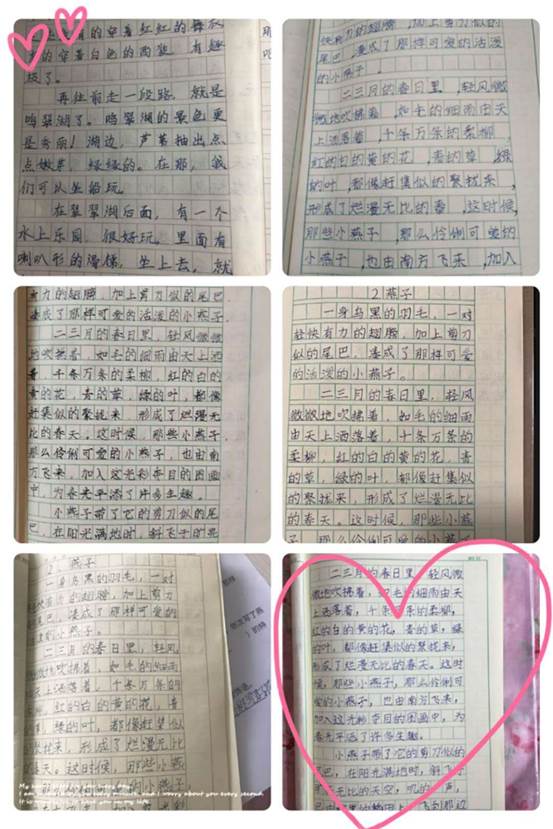 的穿着红红的舞衣
的穿着白色的西装,有趣
极了。
再往前走一段路,就是
鸣翠湖了。鸣翠湖的景色更
是秀丽!湖边,芦苇抽出点
点嫩芽,绿绿的。在那,我
们可以坐船玩。
在翠翠湖后面,有一个
水上乐园,很好玩。里面有
喇叭形的滑梯,坐上去,就
有力的翅膀,加上剪刀似的
尾巴,凑成了那样可爱的活泼
的小燕子。
二三月的春日里,轻风微
微地吹拂着,如毛的细雨由天
上洒落着,千条万条的柔柳,
红的白的黄的花,青的草,绿
的叶,都像赶集似的聚拢来,
形成了烂漫无比的春,这时候,
那些小燕子,那么伶俐可爱的
小燕子,也由南方飞来,加入
有力的翅膀,加上剪刀似的尾巴
凑成了那样可爱的活泼的小燕子。
二三月的春日里,轻风微微
地吹拂着,如毛的细雨由天上洒
着,千条万条的柔柳,红的白的
黄的花,青的草,绿的叶,都像
赶集似的聚拢来,形成了烂漫无
比的春天。这时候,那些小燕子,
那么伶俐可爱的小燕子,也由南
方飞来,加入这光彩夺目的图画
中,为春光平添了许多生趣。
小燕子带了它的剪刀似的尾
巴,在阳光满地时,斜飞于
2 燕子
一身乌黑的羽毛,一对
轻快有力的翅膀,加上剪刀
似的尾巴,凑成了那样可爱
的活泼的小燕子。
二三月的春日里,轻风
微微地吹拂着,如毛的细雨
由天上洒落着,千条万条的
柔柳,红的白的黄的花,青
的草,绿的叶,都像赶集似
的聚拢来,形成了烂漫无比
的春天。这时候,那些小燕
子,那么伶俐可爱的小燕子
2 燕子
一身乌黑的羽毛,一对
轻快有力的翅膀,加上剪刀
似的尾巴,凑成了那样可爱的
小燕子。
二三月的春日里,轻风
微微地吹拂着,如毛的细雨
由天上洒落着,千条万条的
柔柳,红的白的黄的花,青
的草,绿的叶,都像赶集似
的聚拢来,形成了烂漫无比
的春天,这时候,那些小燕
的小燕子
二三月的春日里,轻风微
微地吹拂着,如毛的细雨由天
上洒落着,千条万条的柔柳,
红的白的黄的花,青的草,绿
的叶,都像赶集似的聚拢来,
形成了烂漫无比的春天。这时
候,那些小燕子,那么伶俐可
爱的小燕子,也由南方飞来,
加入这光彩夺目的图画中,为
春光平添了许多生趣。
小燕子带了它的剪刀似的
尾巴,在阳光满地时,斜飞于
无比的天空,叽的一声,